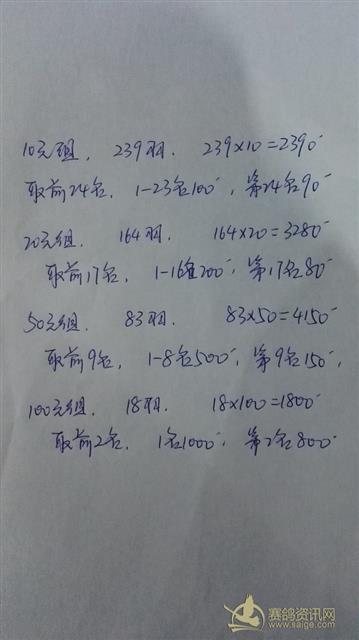 10元组, 239羽. 239×10=2390-
取前24名, 1-23名100-, 第24名90-
20元组. 164羽. 164×20=3280-
取前17名, 1-16名200-, 第17名80-
50元组. 83羽. 83×50=4150-
取前9名, 1-8名500-, 第9名150-,
100元组. 18羽. 18×100=1800-
取前2名, 1名1000-, 第2名800-
赛鸽资讯网
www.saige.com